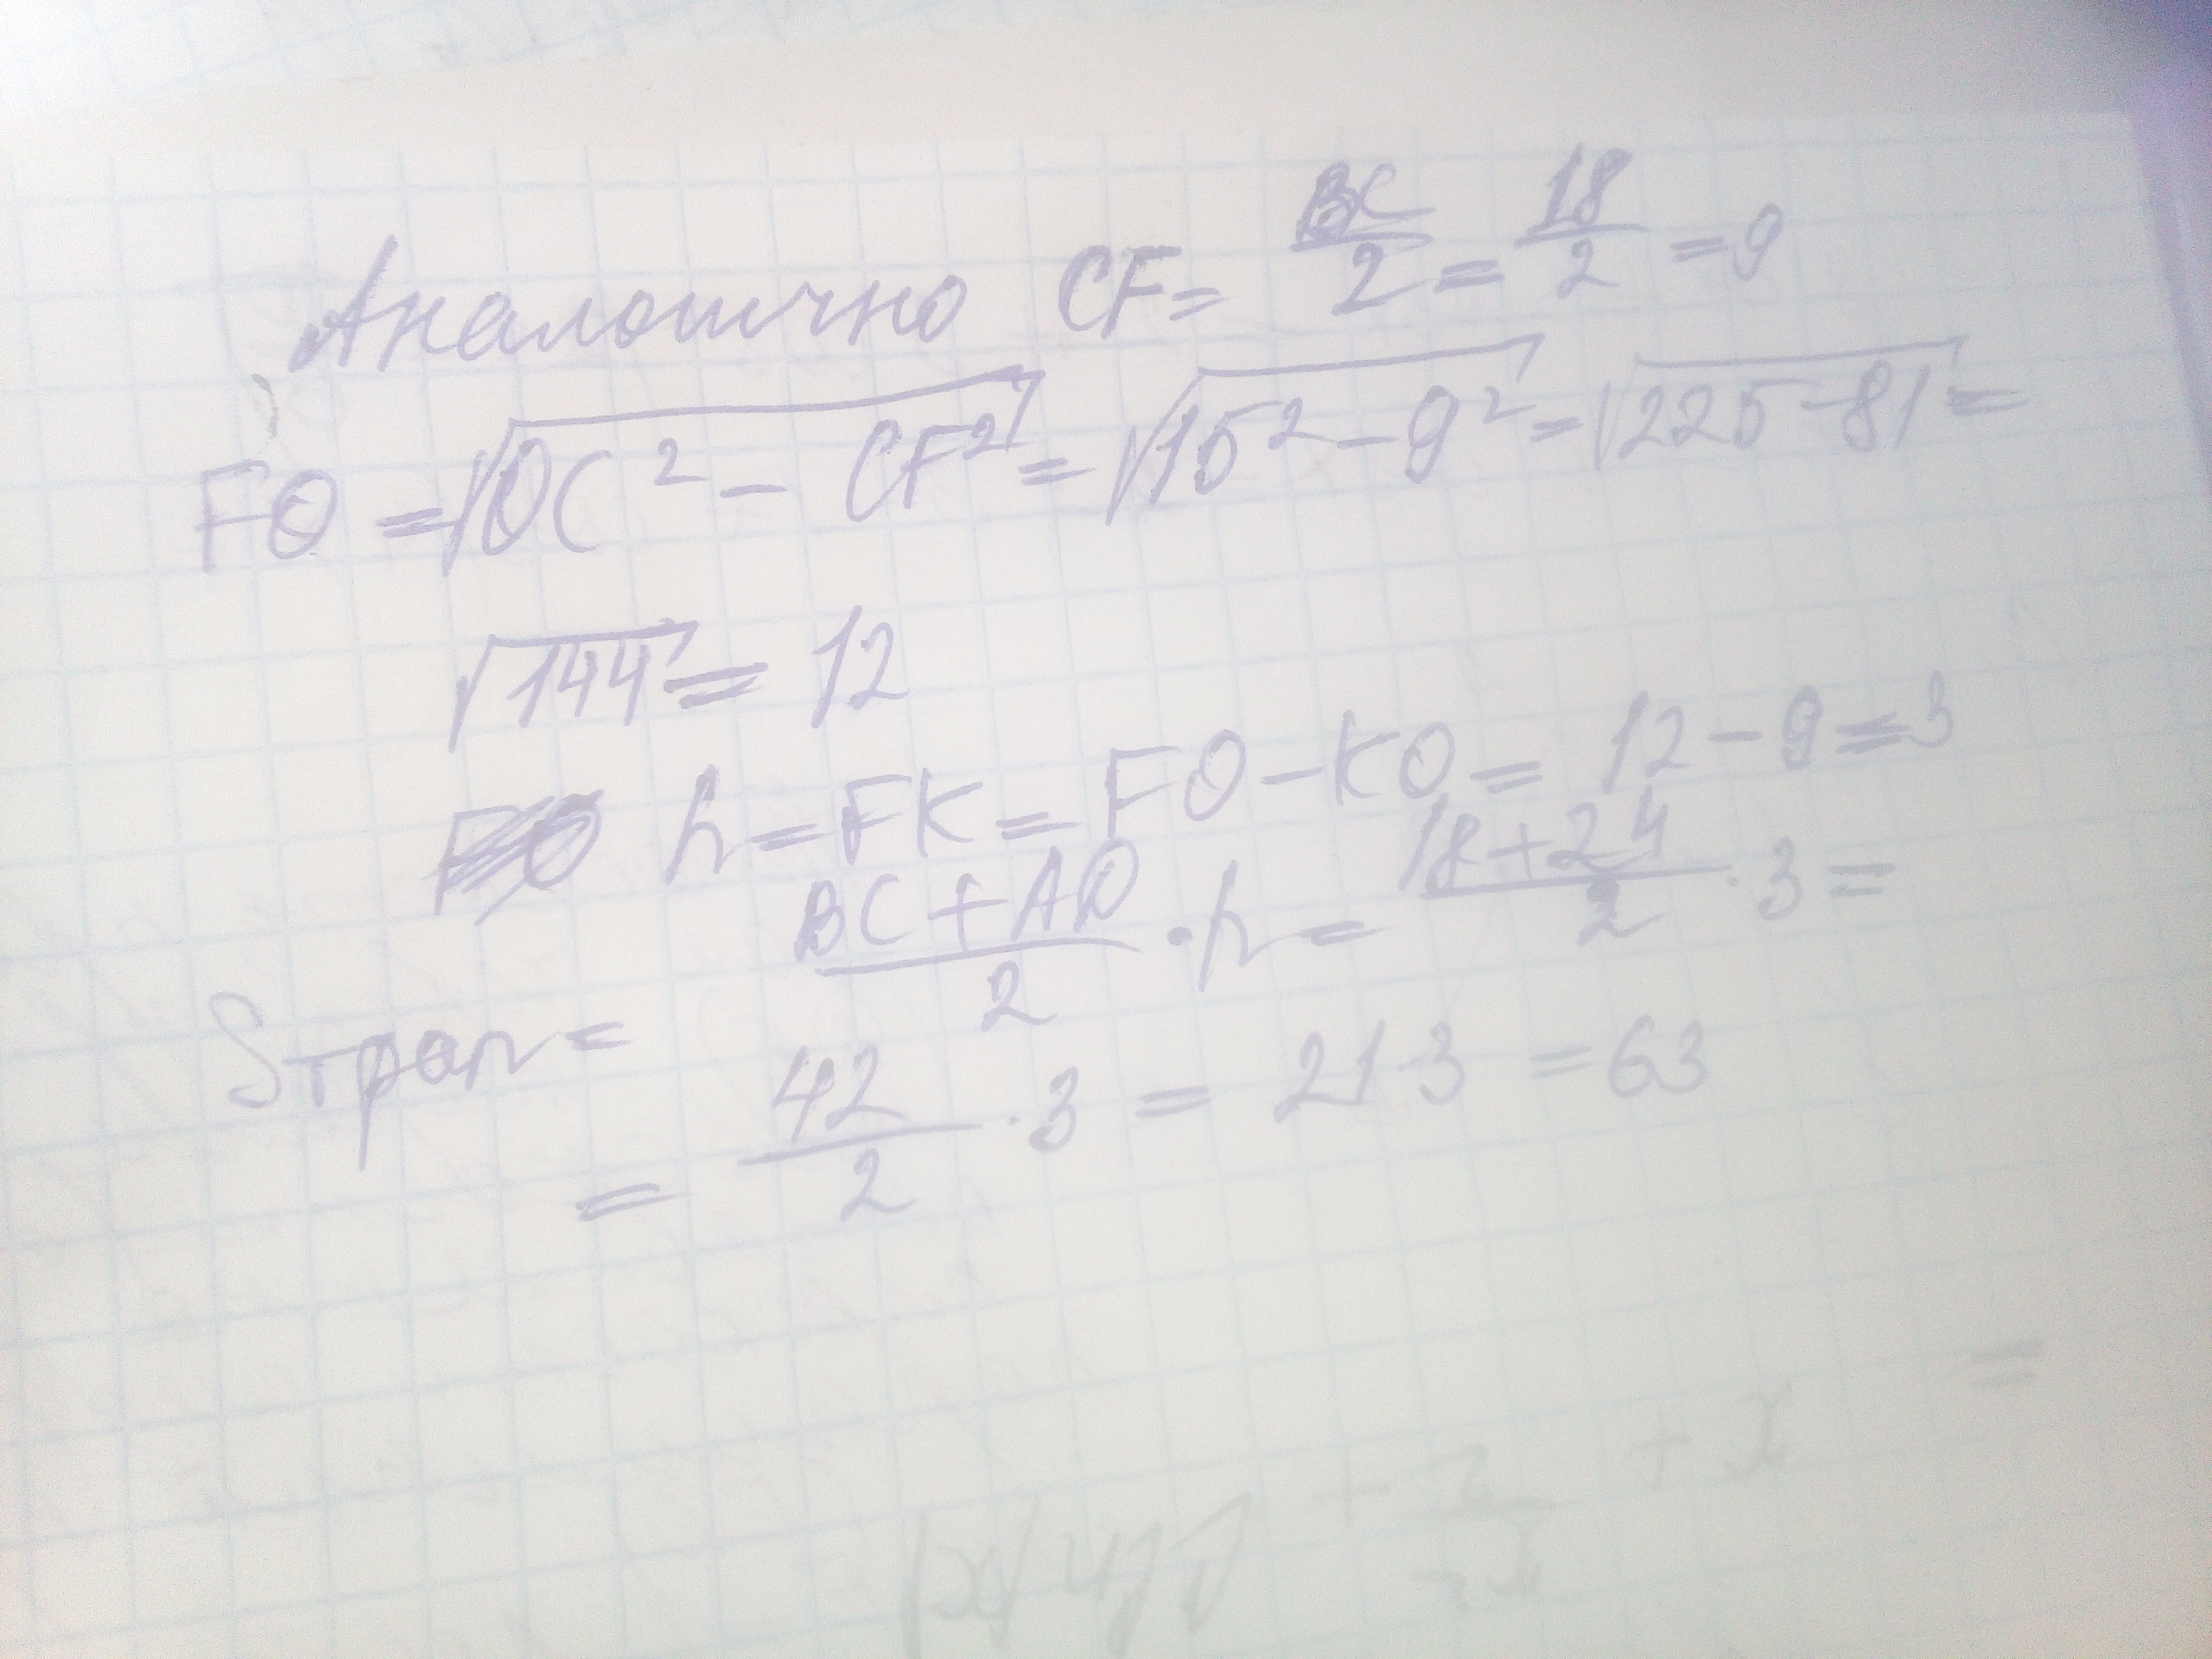 Аналогично CF = BC/2 = 18/2 = 9
FO = √(OC² − CF²) = √(15² − 9²) = √(225 − 81) =
√144 = 12
h = FK = FO − KO = 12 − 9 = 3
Sтрап = (BC + AD)/2 · h = (18 + 24)/2 · 3 =
= 42/2 · 3 = 21 · 3 = 63